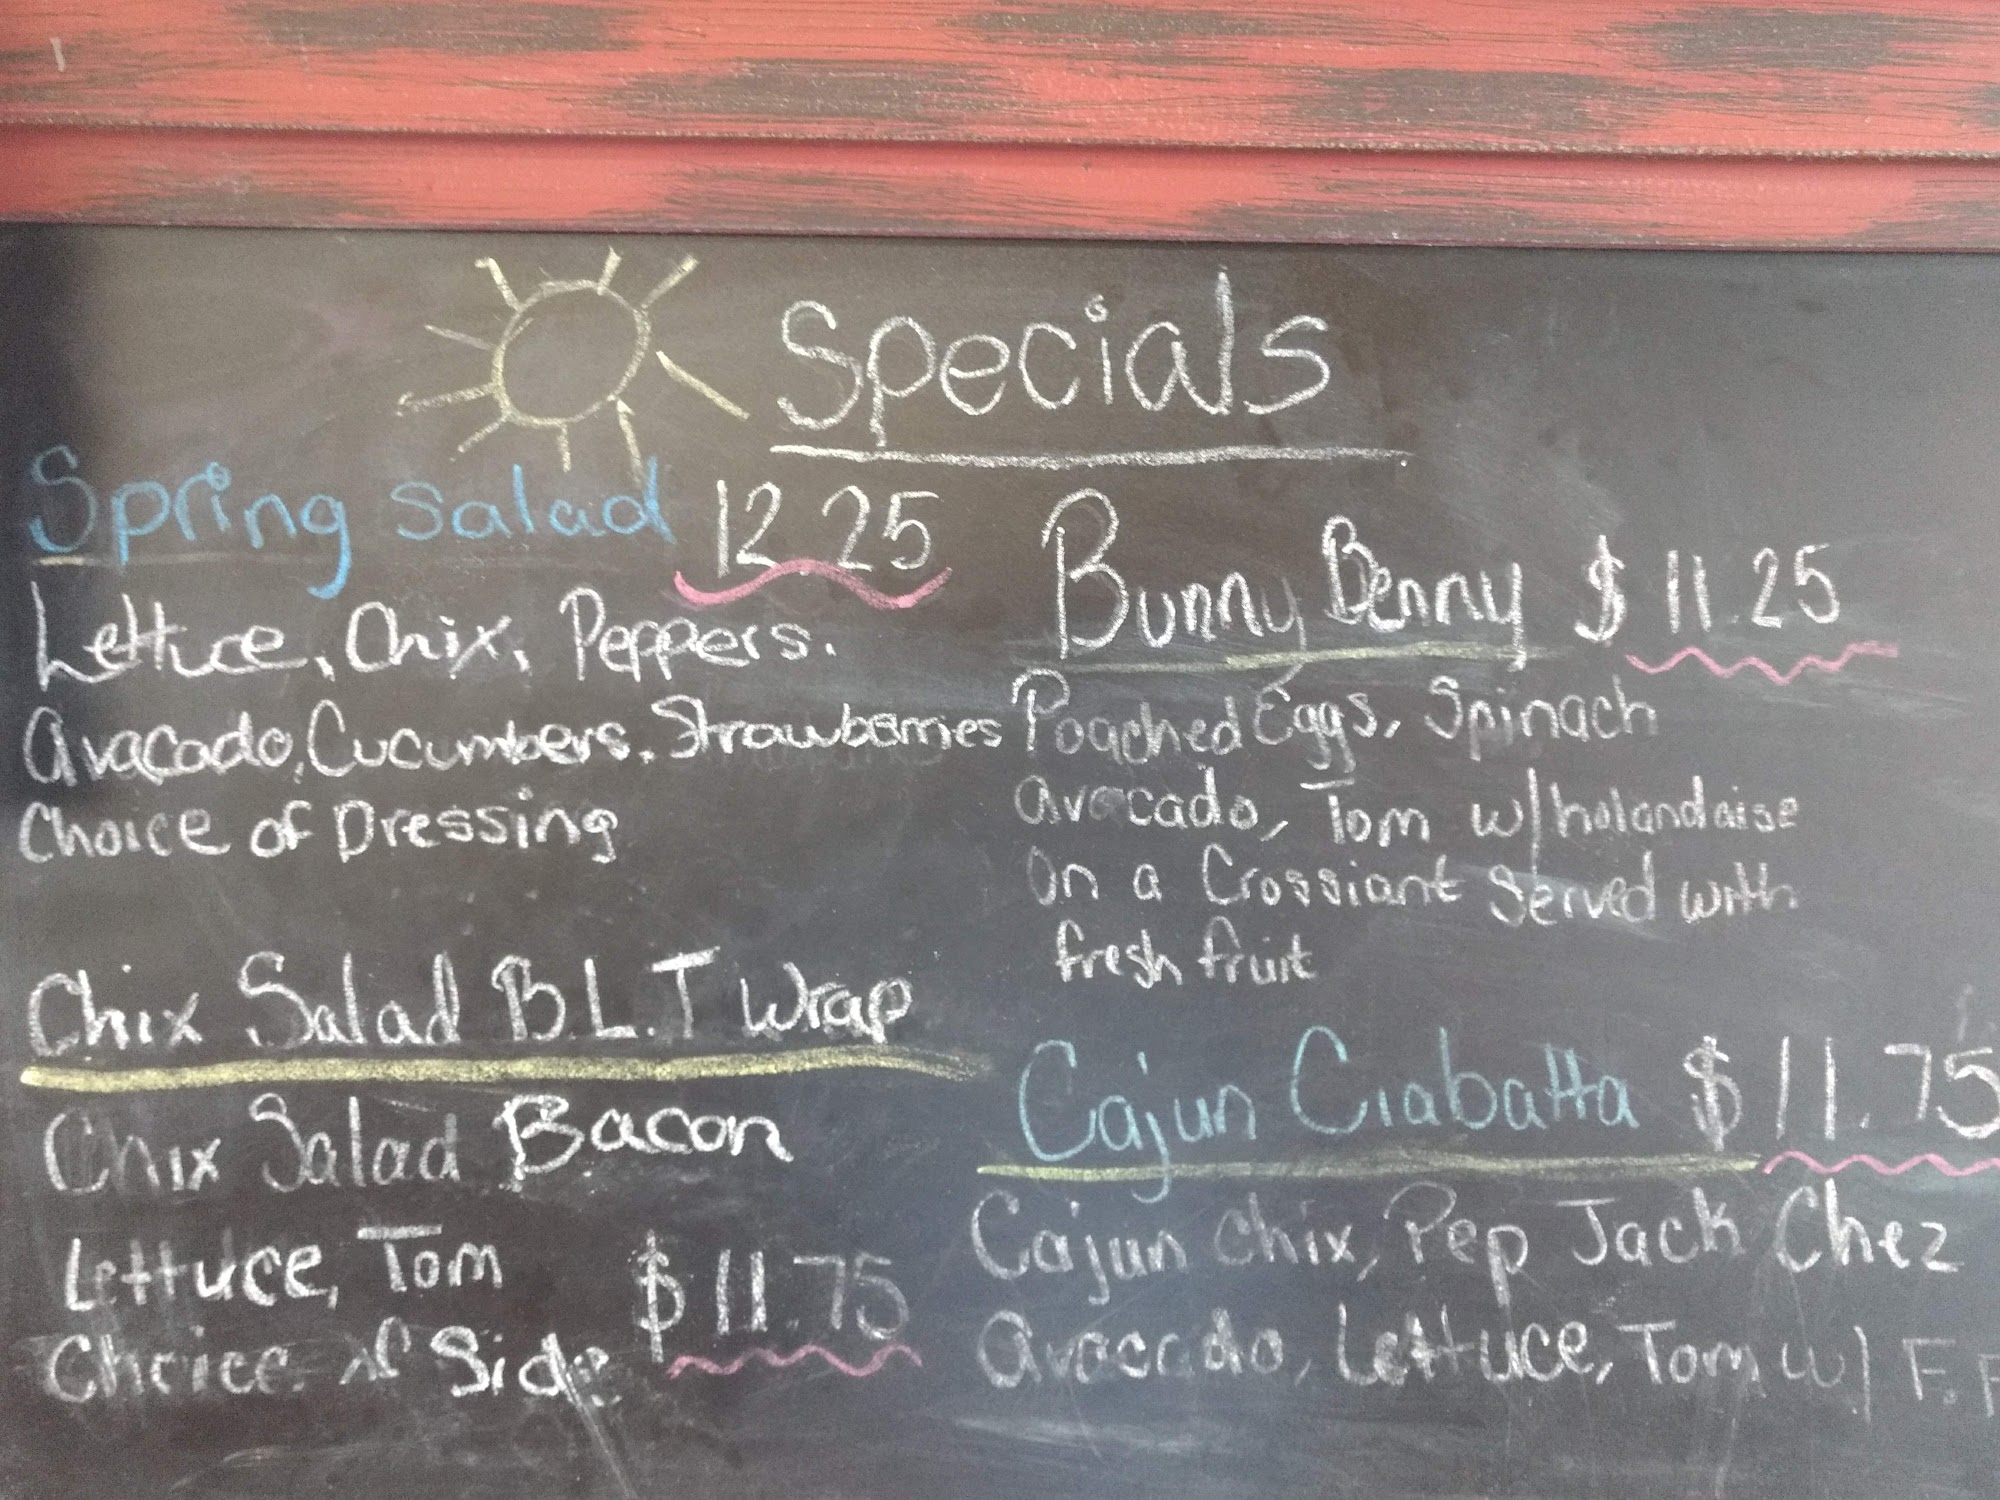 Specials
Spring Salad 12.25
Lettuce, Chix, Peppers.
Avacado, Cucumbers, Strawberries
Choice of Dressing
Chix Salad B.L.T Wrap
Chix Salad Bacon
Lettuce, Tom
Choice of Side $11.75
Bunny Benny $11.25
Poached Eggs, Spinach
Avocado, Tom w/holandaise
On a Crossiant Served with
fresh fruit
Cajun Ciabatta $11.75
Cajun Chix, Pep Jack Chez
Avocado, Lettuce, Tom w/ F.F